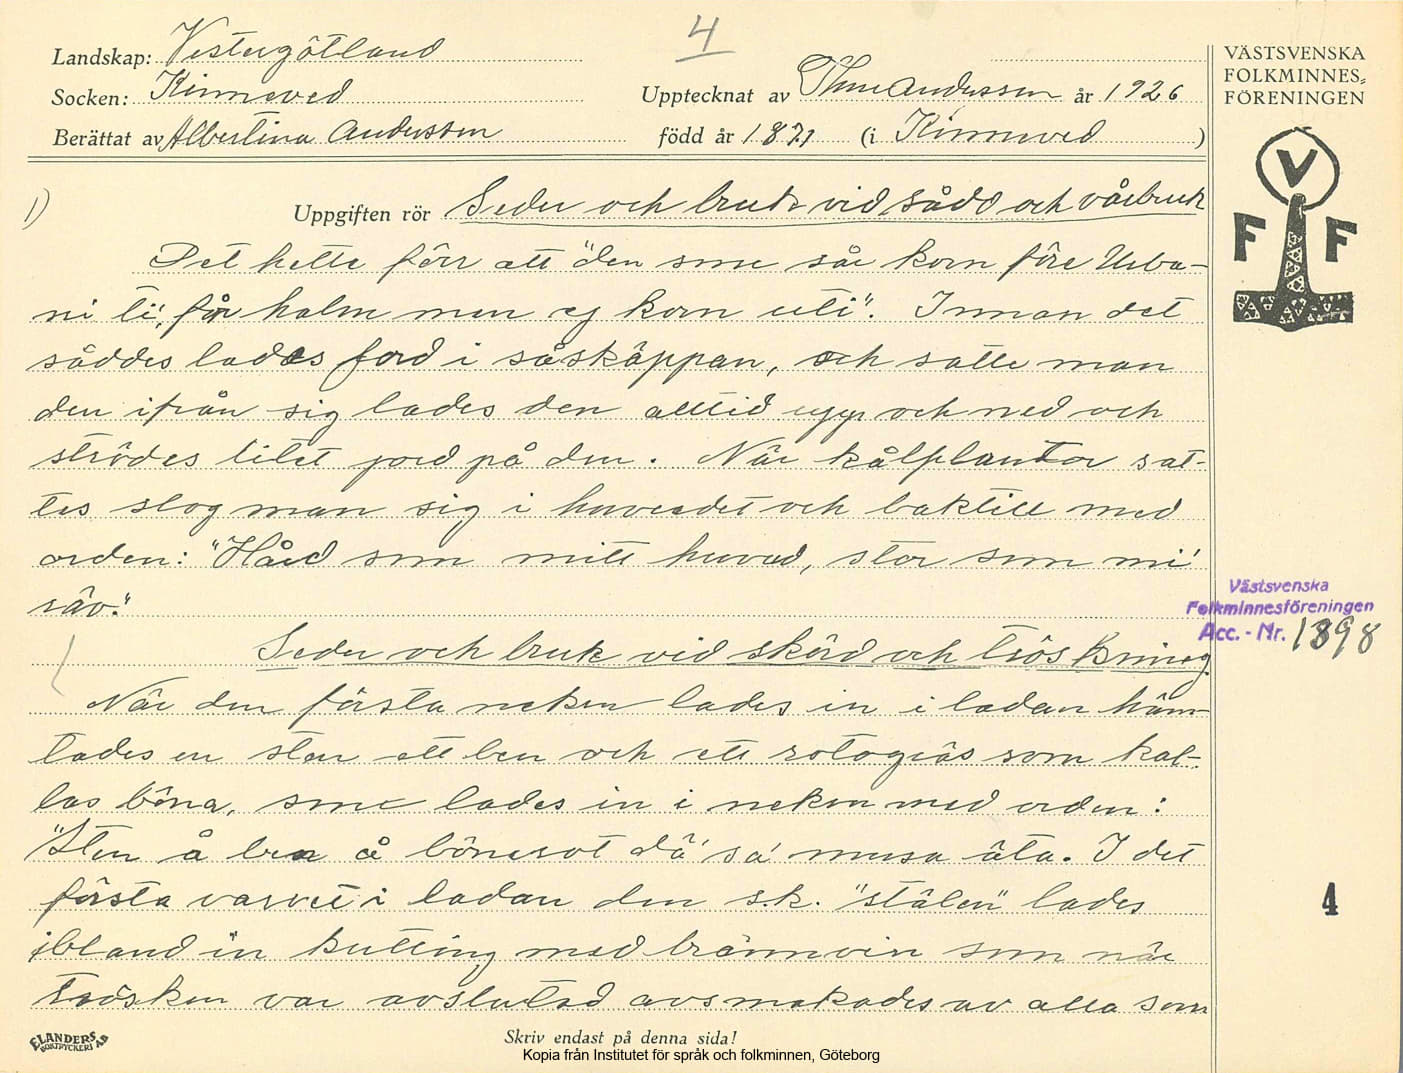 4
Landskap: Vestergötland
Socken: Kinneved
Upptecknat av Thure Andersson år 1926
Berättat av Albertina Andersson född år 1871 (i Kinneved)
VÄSTSVENSKA
FOLKMINNES-
FÖRENINGEN
V
F F
1)
Uppgiften rör Seder och bruk vid sådd och vårbruk
Det hette förr att "den som sår korn före Urba-
ni ti', får halm men ej korn uti". Innan det
såddes lades jord i såskäppan, och satte man
den ifrån sig lades den alltid upp och ned och
ströddes litet jord på den. När kålplantor sat-
tes slog man sig i huvudet och baktill med
orden: "Hård som mitt huvud, stor som mi'
räv."
Seder och bruk vid skörd och tröskning
När den första neken lades in i ladan häm-
tades en sten ett ben och ett rotogräs som kal-
las böna, som lades in i neken med orden:
"Sten å ben å bönerot dä' sa' musa äta. I det
första varvet i ladan den s.k. "stålen" lades
ibland in kutting med brännvin som när
trösken var avslutad avsmakades av alla som
Västsvenska
Folkminnesföreningen
Acc.-Nr. 1898
4
ELANDERS
BOKTRYCKERI AB
Skriv endast på denna sida!
Kopia från Institutet för språk och folkminnen, Göteborg